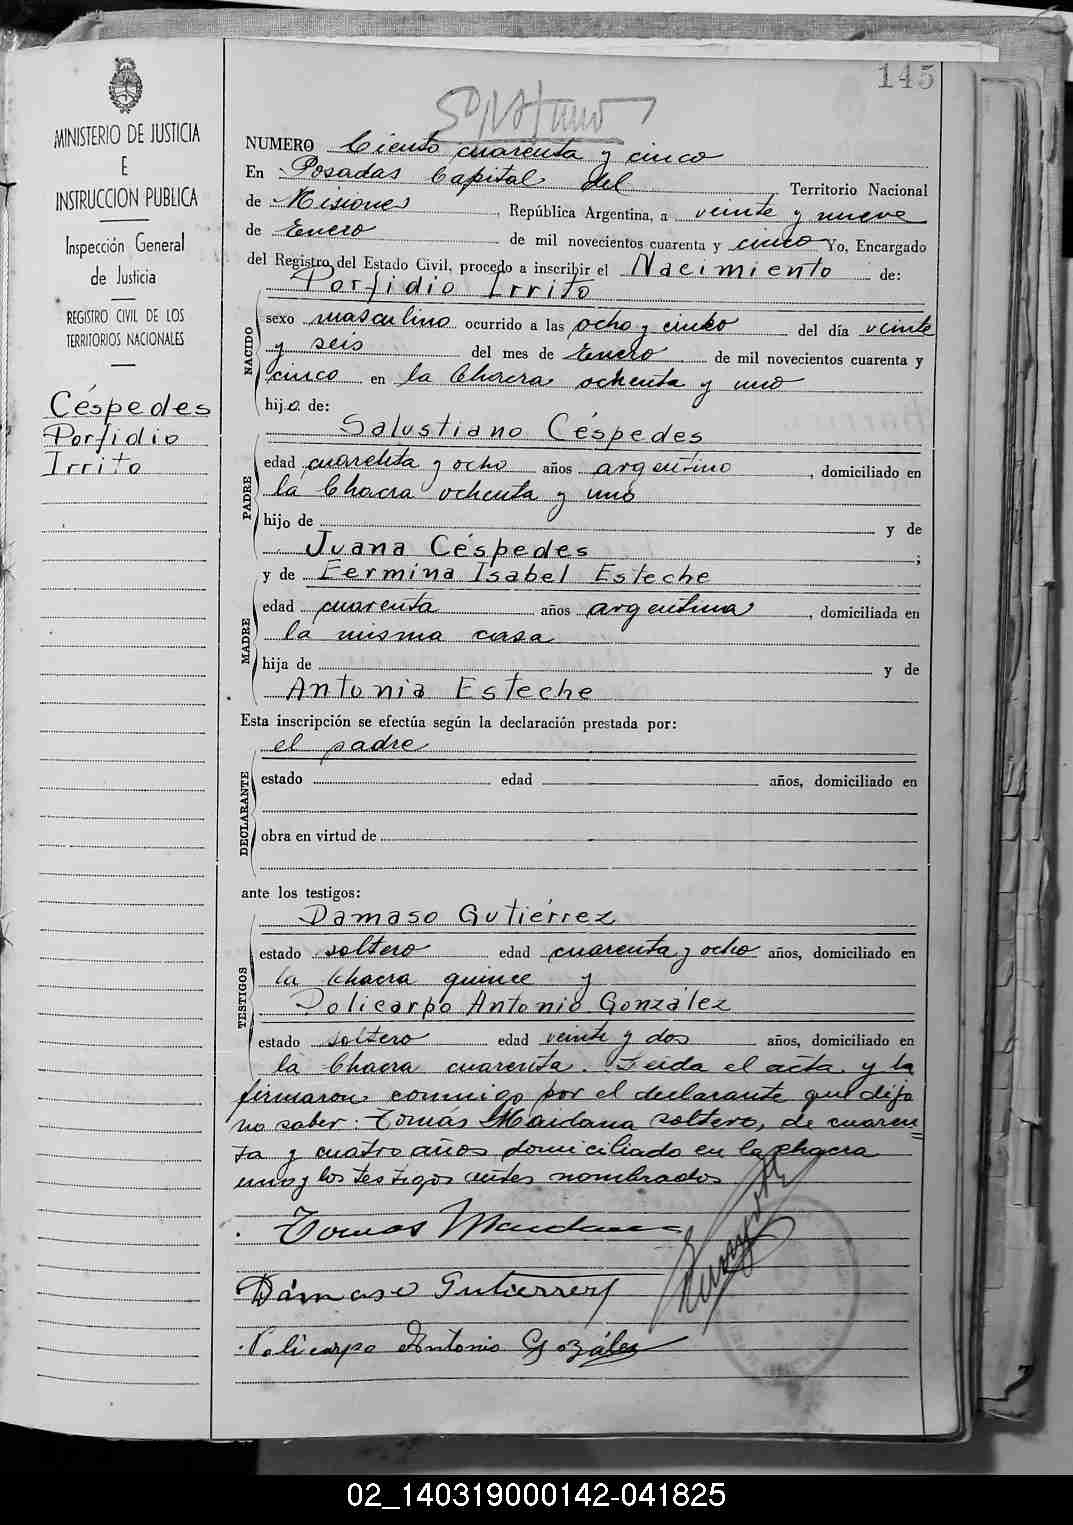 145
MINISTERIO DE JUSTICIA
E
INSTRUCCION PUBLICA
Inspección General
de Justicia
REGISTRO CIVIL DE LOS
TERRITORIOS NACIONALES
Céspedes
Porfidio
Irrito
NUMERO Ciento cuarenta y cinco
En Posadas Capital del Territorio Nacional
de Misiones, República Argentina, a veinte y nueve
de Enero de mil novecientos cuarenta y cinco Yo, Encargado
del Registro del Estado Civil, procedo a inscribir el Nacimiento de:
Porfidio Irrito
NACIDO
sexo masculino ocurrido a las ocho y cinco del día veinte
y seis del mes de Enero de mil novecientos cuarenta y
cinco en la Chacra ochenta y uno
hijo de:
Salustiano Céspedes
PADRE
edad cuarenta y ocho años argentino, domiciliado en
la Chacra ochenta y uno
hijo de y de
Juana Céspedes;
y de Fermina Isabel Esteche
MADRE
edad cuarenta años argentina, domiciliada en
la misma casa
hija de y de
Antonia Esteche
Esta inscripción se efectúa según la declaración prestada por:
el padre
DECLARANTE
estado edad años, domiciliado en
obra en virtud de
ante los testigos:
Damaso Gutiérrez
TESTIGOS
estado soltero edad cuarenta y ocho años, domiciliado en
la Chacra quince y
Policarpo Antonio González
estado soltero edad veinte y dos años, domiciliado en
la Chacra cuarenta. Leida el acta y la
firmaron conmigo por el declarante que dijo
no saber. Tomás Maidana soltero, de cuaren=
ta y cuatro años domiciliado en la chacra
uno y los testigos antes nombrados
Tomas Maidana
Dámaso Gutierrez
Policarpo Antonio Gozález
02_140319000142-041825